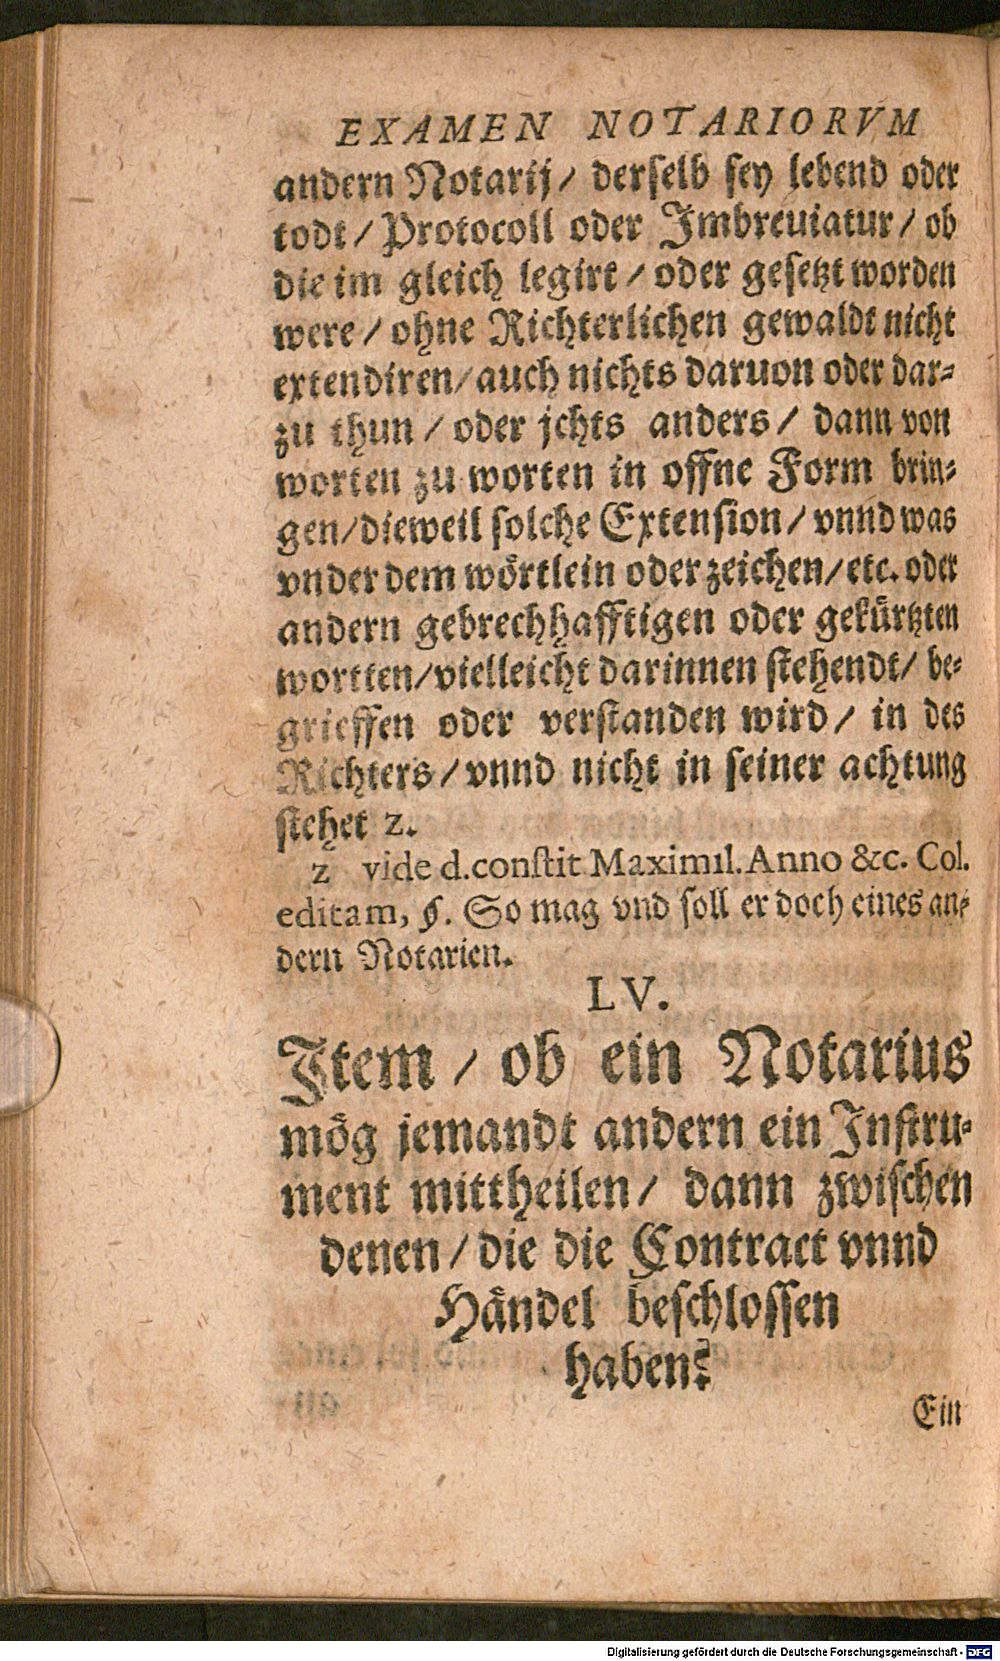 EXAMEN NOTARIORVM
andern Notarij/ derselb sey lebend oder
todt/ Protocoll oder Imbreuiatur/ ob
die im gleich legirt/ oder gesetzt worden
were/ ohne Richterlichen gewaldt nicht
extendiren/ auch nichts daruon oder dar-
zu thun/ oder jchts anders/ dann von
worten zu worten in offne Form brin-
gen/ dieweil solche Extension/ vnnd was
vnder dem wörtlein oder zeichen/ etc. oder
andern gebrechhafftigen oder gekürtzten
wortten/ vielleicht darinnen stehendt/ be-
grieffen oder verstanden wird/ in des
Richters/ vnnd nicht in seiner achtung
stehet z.
z vide d. constit Maximil. Anno &c. Col.
editam, §. So mag vnd soll er doch eines an-
dern Notarien.
LV.
Item/ ob ein Notarius
mög jemandt andern ein Instru-
ment mittheilen/ dann zwischen
denen/ die die Contract vnnd
Händel beschlossen
haben?
Ein
Digitalisierung gefördert durch die Deutsche Forschungsgemeinschaft - DFG